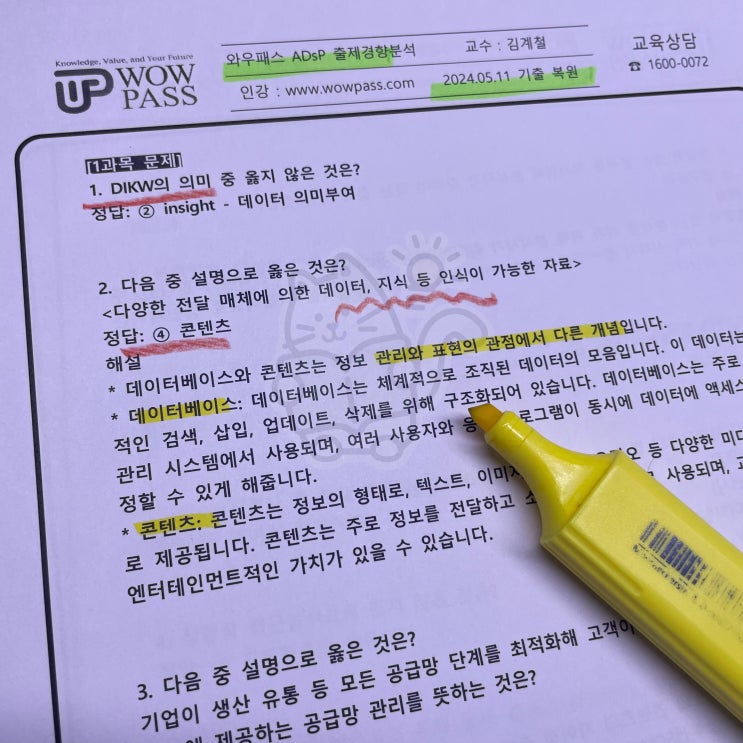 Knowledge, Value, and Your Future
UP WOW PASS
와우패스 ADsP 출제경향분석
교수 : 김계철
교육상담
인강 : www.wowpass.com
2024.05.11 기출 복원
☎ 1600-0072
[1과목 문제]
1. DIKW의 의미 중 옳지 않은 것은?
정답: ② insight - 데이터 의미부여
2. 다음 중 설명으로 옳은 것은?
<다양한 전달 매체에 의한 데이터, 지식 등 인식이 가능한 자료>
정답: ④ 콘텐츠
해설
* 데이터베이스와 콘텐츠는 정보 관리와 표현의 관점에서 다른 개념입니다.
* 데이터베이스: 데이터베이스는 체계적으로 조직된 데이터의 모음입니다. 이 데이터는
적인 검색, 삽입, 업데이트, 삭제를 위해 구조화되어 있습니다. 데이터베이스는 주로
관리 시스템에서 사용되며, 여러 사용자와 로그램이 동시에 데이터에 액세스
정할 수 있게 해줍니다.
* 콘텐츠: 콘텐츠는 정보의 형태로, 텍스트, 이미지 오 등 다양한 미디
로 제공됩니다. 콘텐츠는 주로 정보를 전달하고 사용되며,
엔터테인먼트적인 가치가 있을 수 있습니다.
3. 다음 중 설명으로 옳은 것은?
기업이 생산 유통 등 모든 공급망 단계를 최적화해 고객이
제공하는 공급망 관리를 뜻하는 것은?